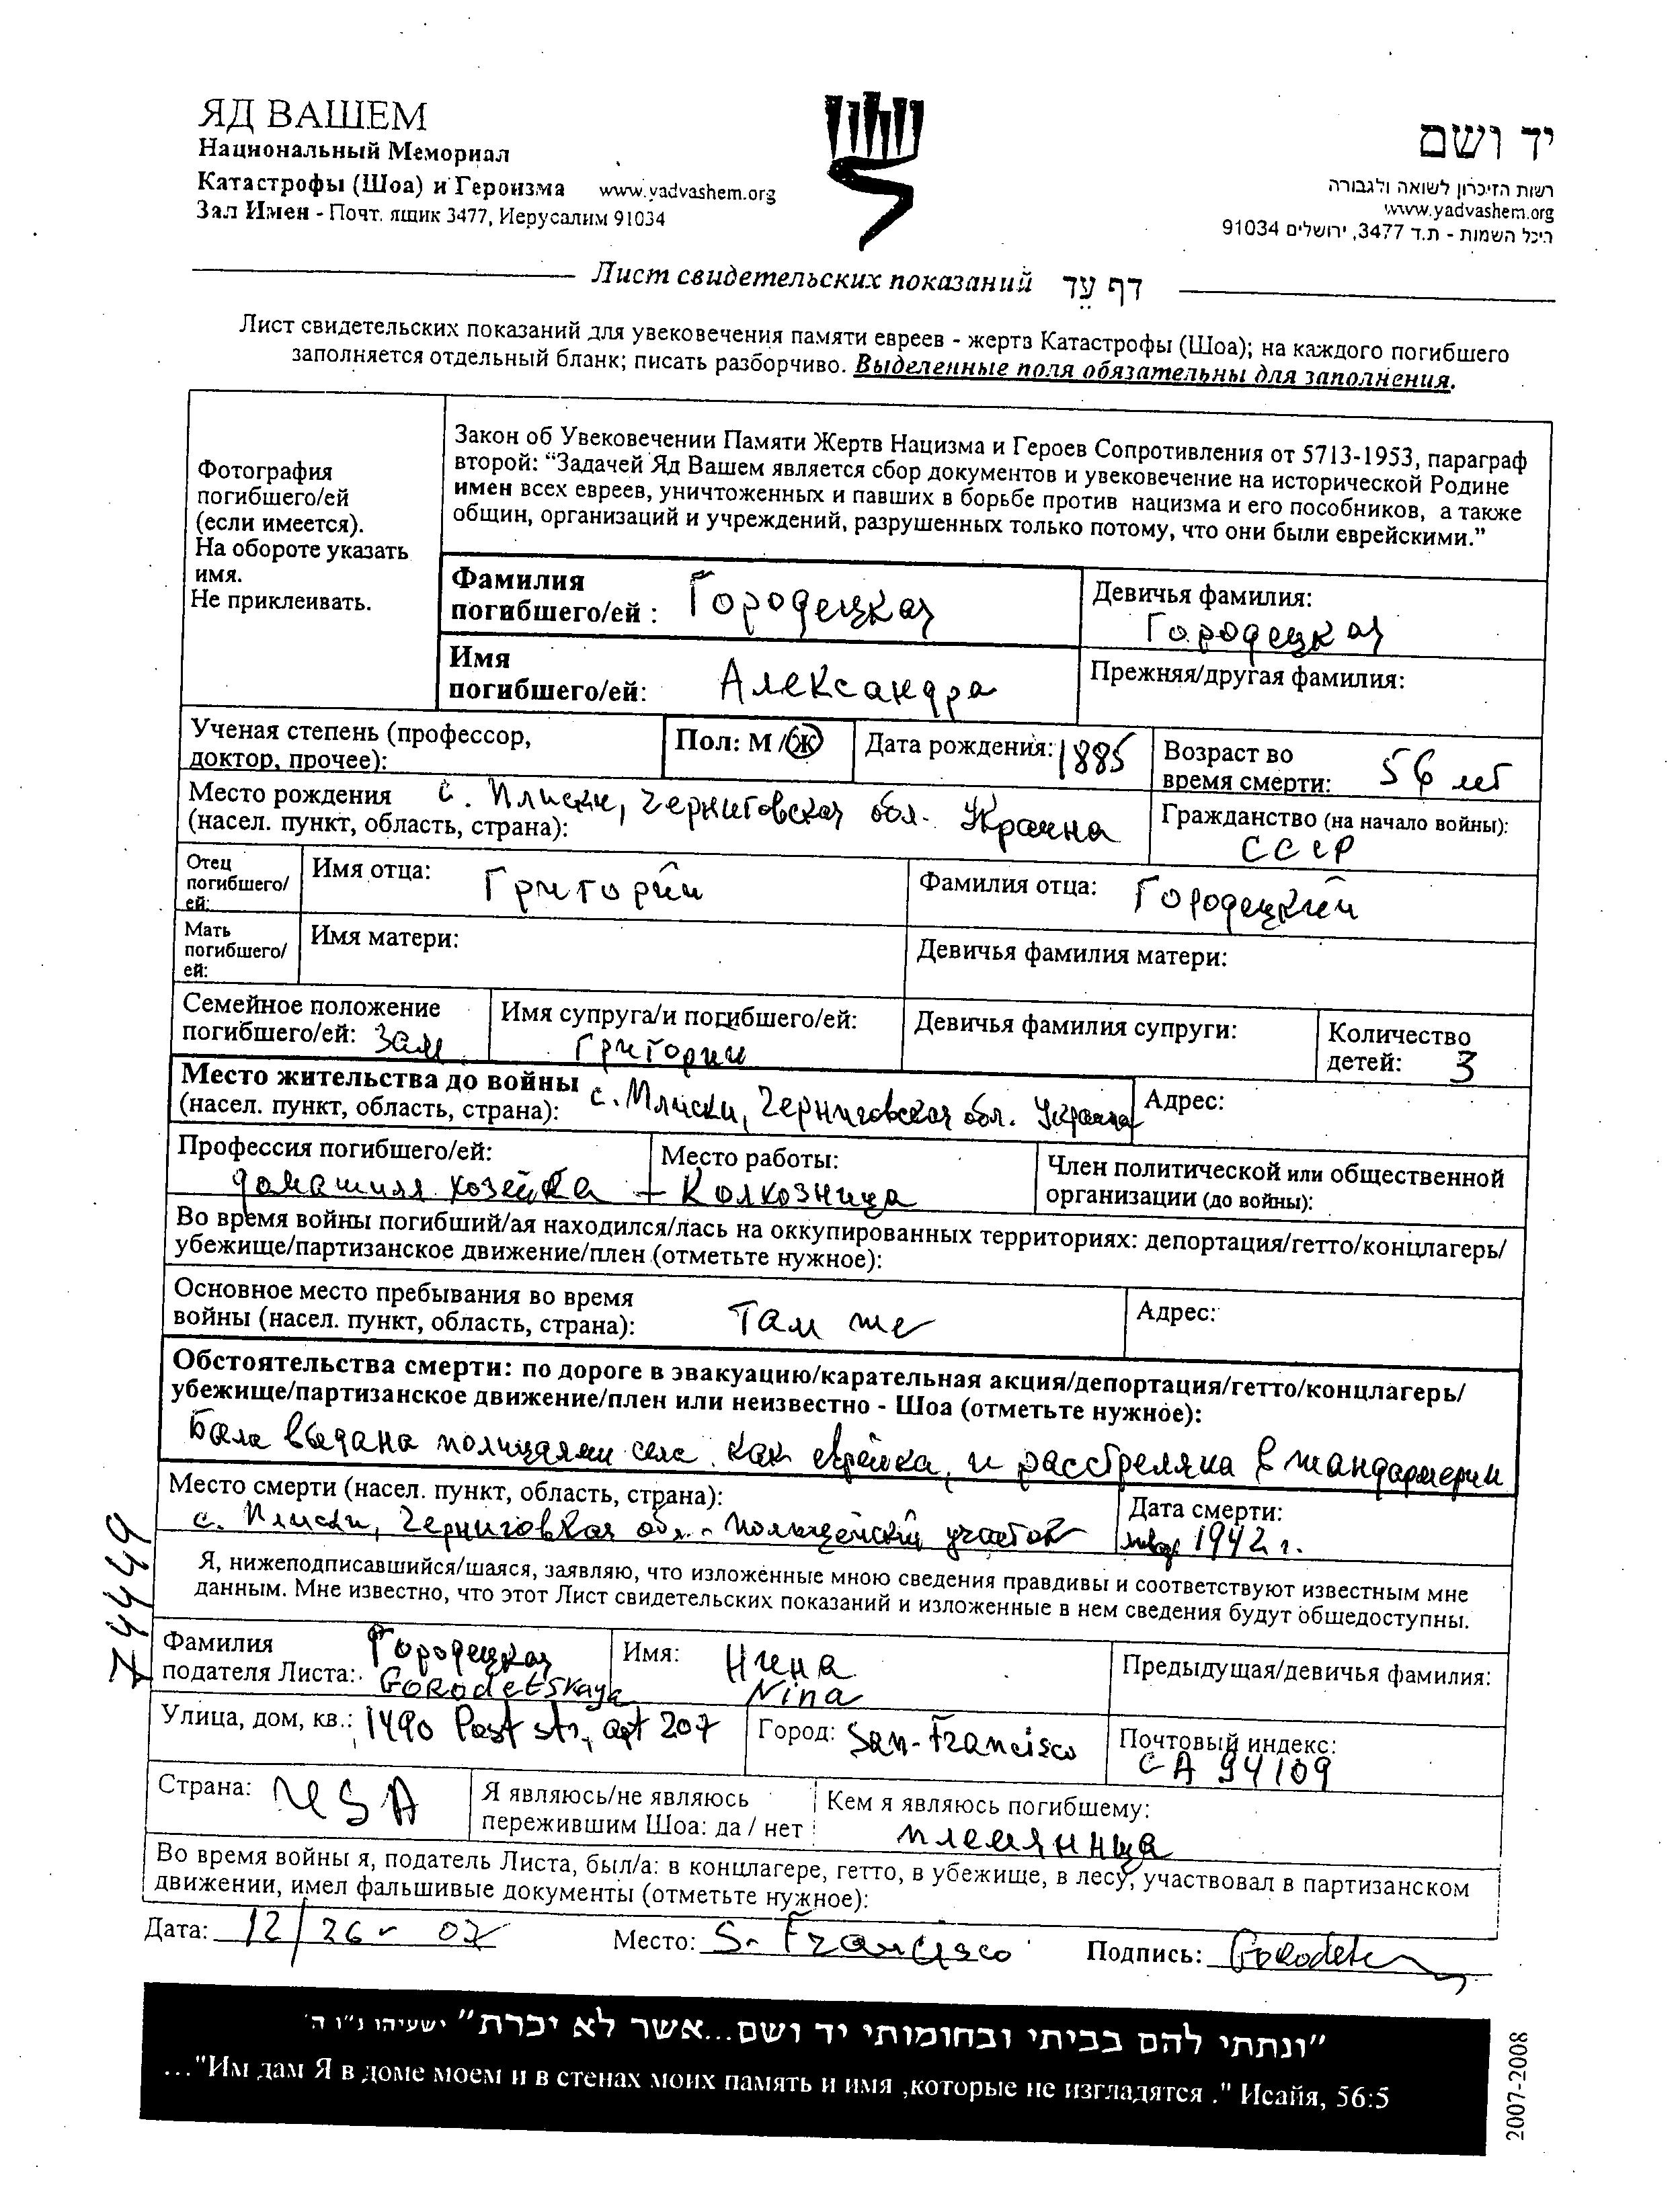 ЯД ВАШЕМ
Национальный Мемориал
Катастрофы (Шоа) и Героизма www.yadvashem.org
Зал Имен - Почт. ящик 3477, Иерусалим 91034
יד ושם
רשות הזיכרון לשואה ולגבורה
www.yadvashem.org
היכל השמות - ת.ד 3477, ירושלים 91034
Лист свидетельских показаний דף עֵד
Лист свидетельских показаний для увековечения памяти евреев - жертв Катастрофы (Шоа); на каждого погибшего
заполняется отдельный бланк; писать разборчиво. Выделенные поля обязательны для заполнения.
Фотография
погибшего/ей
(если имеется).
На обороте указать
имя.
Не приклеивать.
Закон об Увековечении Памяти Жертв Нацизма и Героев Сопротивления от 5713-1953, параграф
второй: “Задачей Яд Вашем является сбор документов и увековечение на исторической Родине
имен всех евреев, уничтоженных и павших в борьбе против нацизма и его пособников, а также
общин, организаций и учреждений, разрушенных только потому, что они были еврейскими.”
Фамилия
погибшего/ей : Городецкая
Девичья фамилия:
Городецкая
Имя
погибшего/ей: Александра
Прежняя/другая фамилия:
Ученая степень (профессор,
доктор, прочее):
Пол: М /Ж
Дата рождения: 1885
Возраст во
время смерти: 56 лет
Место рождения с. Плиски, Черниговская обл. Украина
(насел. пункт, область, страна):
Гражданство (на начало войны):
СССР
Отец
погибшего/
ей:
Имя отца: Григорий
Фамилия отца: Городецкий
Мать
погибшего/
ей:
Имя матери:
Девичья фамилия матери:
Семейное положение
погибшего/ей: Зам
Имя супруга/и погибшего/ей:
Григорий
Девичья фамилия супруги:
Количество
детей: 3
Место жительства до войны
(насел. пункт, область, страна): с. Плиски, Черниговская обл. Украина
Адрес:
Профессия погибшего/ей:
домашняя хозяйка -
Место работы:
Колхозница
Член политической или общественной
организации (до войны):
Во время войны погибший/ая находился/лась на оккупированных территориях: депортация/гетто/концлагерь/
убежище/партизанское движение/плен (отметьте нужное):
Основное место пребывания во время
войны (насел. пункт, область, страна): Там же
Адрес:
Обстоятельства смерти: по дороге в эвакуацию/карательная акция/депортация/гетто/концлагерь/
убежище/партизанское движение/плен или неизвестно - Шоа (отметьте нужное):
Была выдана полицаями села, как еврейка, и расстреляна в жандармерии
Место смерти (насел. пункт, область, страна):
с. Плиски, Черниговская обл. - полицейский участок
Дата смерти:
1942 г.
Я, нижеподписавшийся/шаяся, заявляю, что изложенные мною сведения правдивы и соответствуют известным мне
данным. Мне известно, что этот Лист свидетельских показаний и изложенные в нем сведения будут общедоступны.
74449
Фамилия
подателя Листа: Городецкая
Gorodetskaya
Имя: Нина
Nina
Предыдущая/девичья фамилия:
Улица, дом, кв.: 1490 Post str, apt 207
Город: San-Francisco
Почтовый индекс:
CA 94109
Страна: USA
Я являюсь/не являюсь
пережившим Шоа: да / нет
Кем я являюсь погибшему:
племянница
Во время войны я, податель Листа, был/а: в концлагере, гетто, в убежище, в лесу, участвовал в партизанском
движении, имел фальшивые документы (отметьте нужное):
Дата: 12/26-07 Место: S. Francisco Подпись: Gorodets
"ונתתי להם בביתי ובחומותי יד ושם...אשר לא יכרת" ישעיהו נ"ו ה'
..."Им дам Я в доме моем и в стенах моих память и имя ,которые не изгладятся ." Исайя, 56:5
2007-2008